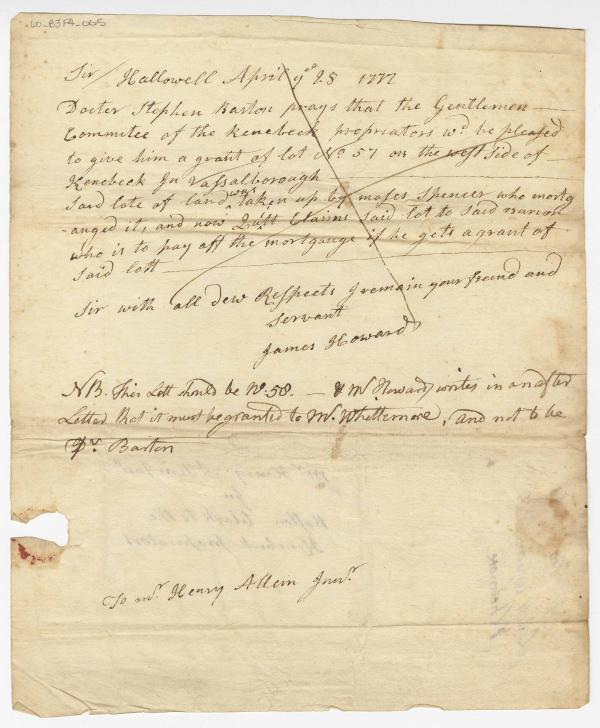 LO-B3F4-005
Sir/ Hallowell April ye 28 1772
Docter Stephen Barton prays that the Gentlemen
Commitee of the Kenebeck propriators wd. be pleased
to give him a grant of lot No. 57 on the west side of
Kenebeck In Vassalborough
Said lote of land was taken up by moses Spencer who mortg
-anged it, and now Claims said lot to said
who is to pay off the mortgauge if he gets a grant of
said lott
Sir with all dew Respects I remain your friend and
Servant
James Howard
NB. This Lott should be No. 58. — & Mr Howard writes in an after
Letter that it must be granted to Mr. Whittemore, and not to be
Dr. Barton
To mr. Henry Allein Junr.